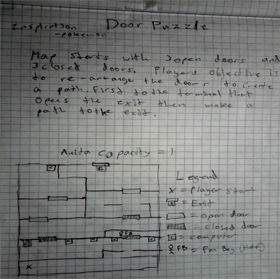 Door Puzzle
Inspiration
-pokemon
Map starts with 3 open doors and
3 closed doors. Players objective is
to re-arrange the doors to create
a path first to the terminal that
opens the exit then make a
path to the exit.
capacity = 1
Legend
x = Player start
= Exit
= open door
= closed door
= computer
x